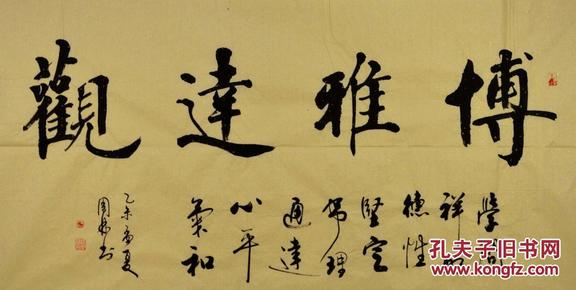 博雅達觀
學
祥
德性
堅定
事理
通達
心平
氣和
乙未夏
書
孔夫子旧书网
www.kongfz.com